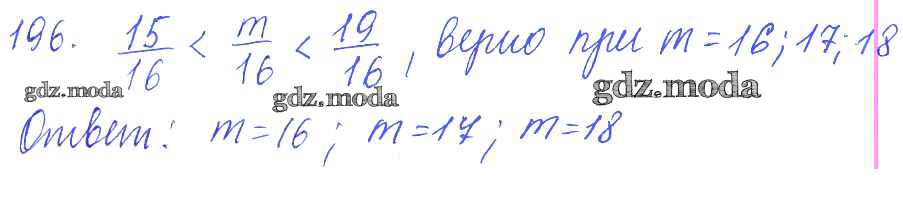 196. 15/16 < m/16 < 19/16, верно при m = 16; 17; 18
gdz.moda gdz.moda gdz.moda
Ответ: m = 16; m = 17; m = 18